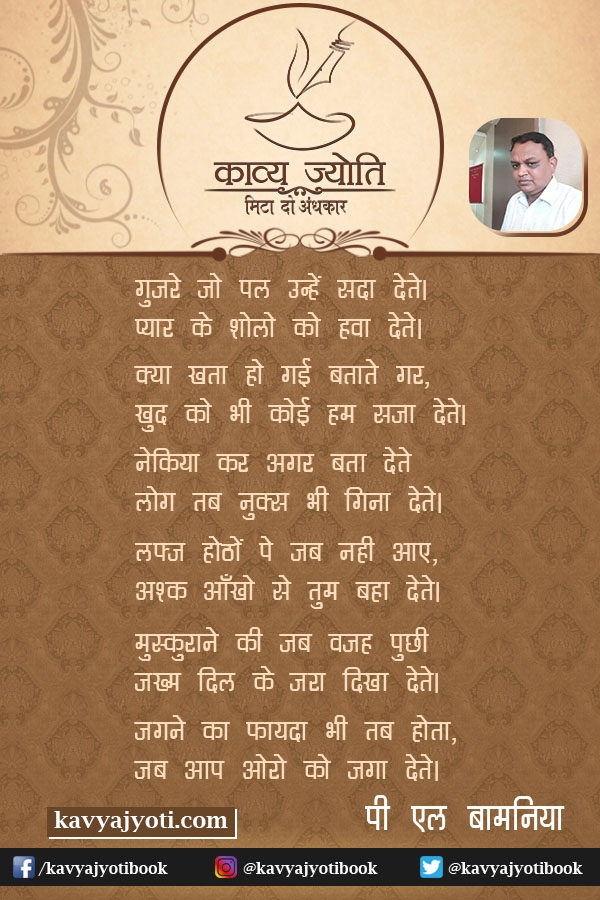 काव्य ज्योति
मिटा दो अंधकार
गुजरे जो पल उन्हें सदा देते।
प्यार के शोलो को हवा देते।
क्या खता हो गई बताते गर,
खुद को भी कोई हम सजा देते।
नेकिया कर अगर बता देते
लोग तब नुक्स भी गिना देते।
लफ्ज होठों पे जब नही आए,
अश्क आँखो से तुम बहा देते।
मुस्कुराने की जब वजह पुछी
जख्म दिल के जरा दिखा देते।
जगने का फायदा भी तब होता,
जब आप ओरो को जगा देते।
पी एल बामनिया
kavyajyoti.com
/kavyajyotibook @kavyajyotibook @kavyajyotibook